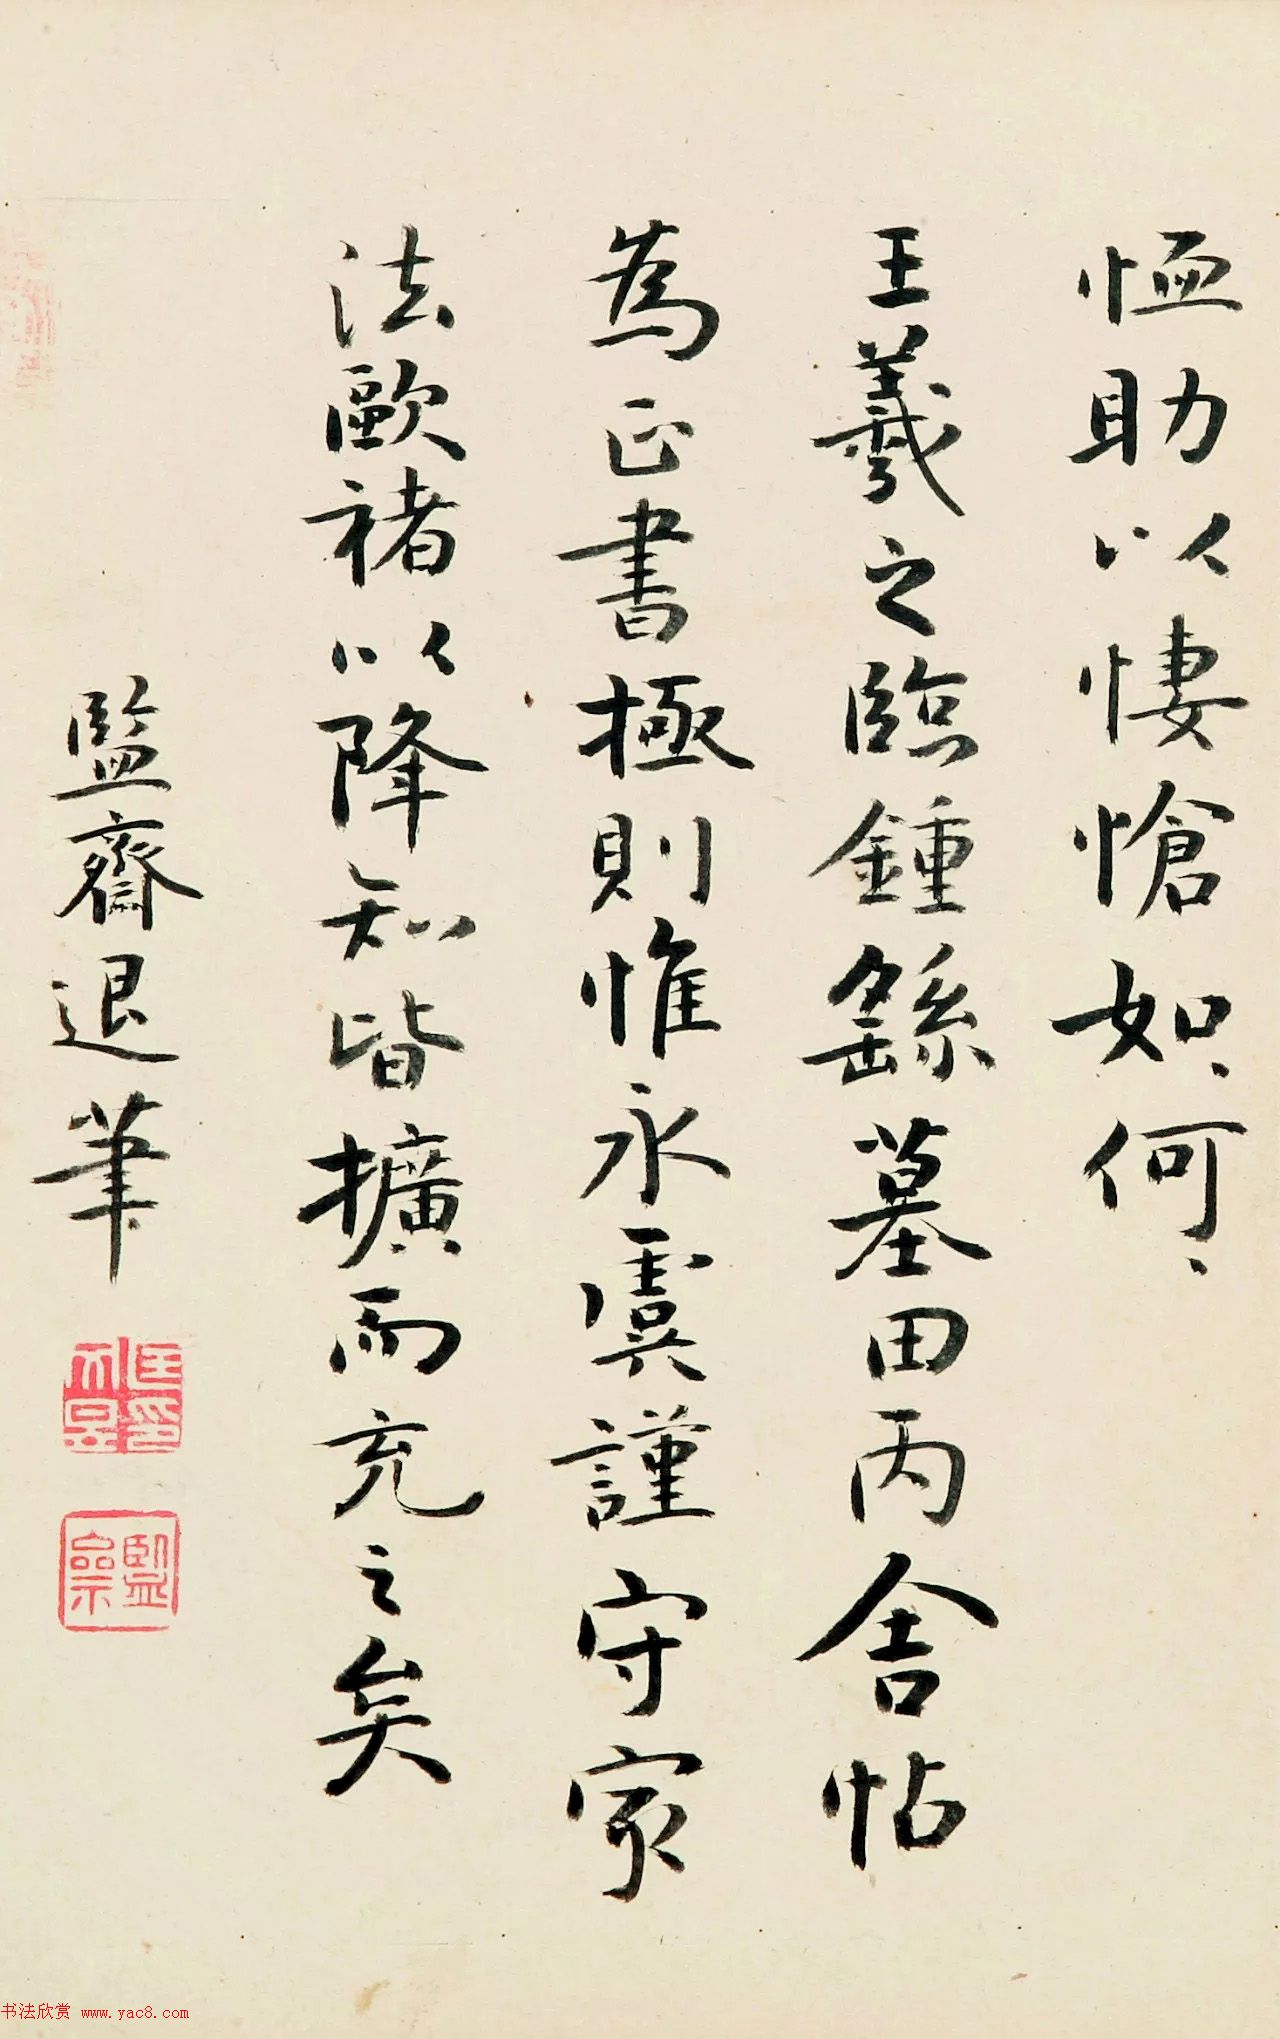 恤助以悽愴如〻何〻
王羲之臨鍾繇墓田丙舍帖
為正書極則惟永虞謹守家
法歐褚以降知皆擴而充之矣
監齋退筆
书法欣赏 www.yac8.com